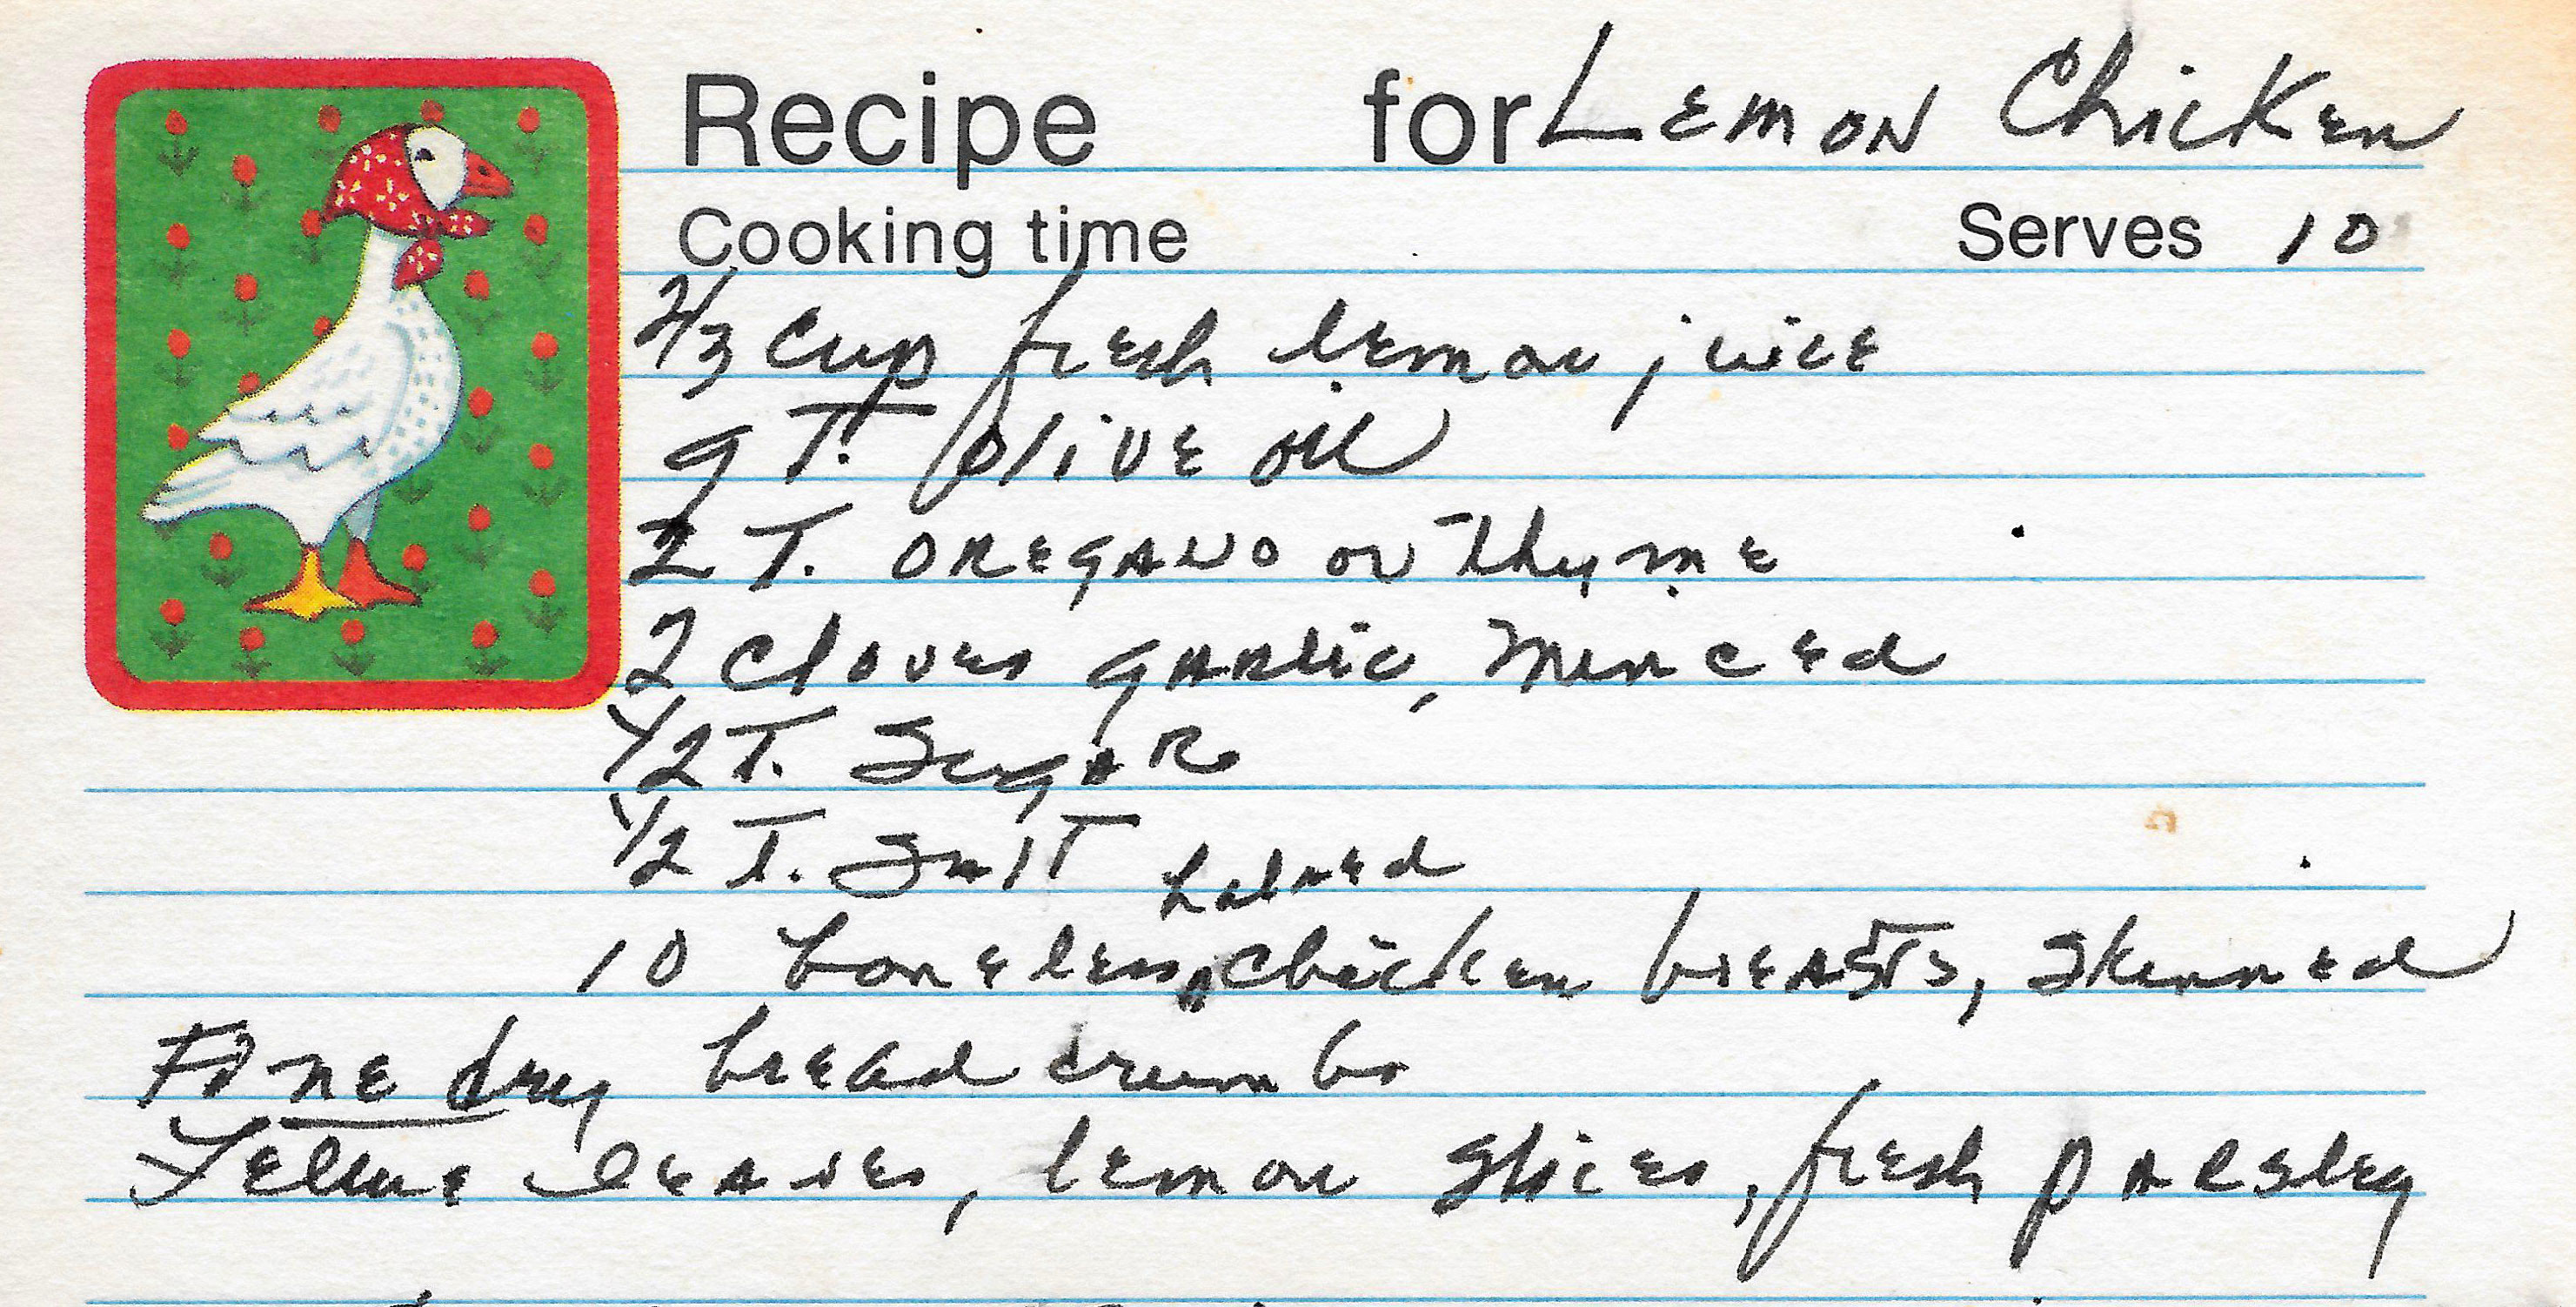 Recipe for Lemon Chicken
Cooking time Serves 10
2/3 cup fresh lemon juice
9 T. olive oil
2 T. oregano or thyme
2 cloves garlic, minced
1/2 T. Sugar
1/2 T. Salt
halved
10 boneless chicken breasts, skinned
Fine dry bread crumbs
leaves, lemon slices, fresh parsley